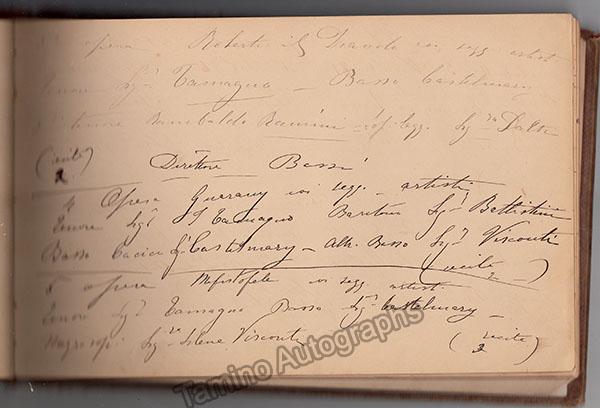 opera Roberto il Diavolo coi segg. artisti
Tenore Sigr Tamagno – Basso Castelmary
Rambaldo Ramini – Sop. legg. Siga Dalti
(recite)
2
Direttore Bassi
4 Opera Guarany coi segg. artisti
Tenore Sigr Tamagno Baritono Sigr Battistini
Basso Cacico Sigr Castelmary – Altr. Basso Sigr Visconti
(recite 2)
5 opera Mefistofele coi segg. artisti
Tenore Sigr Tamagno Basso Sigr Castelmary –
Mezzo sop. Siga Visconti
(recite
3)
Tamino Autographs